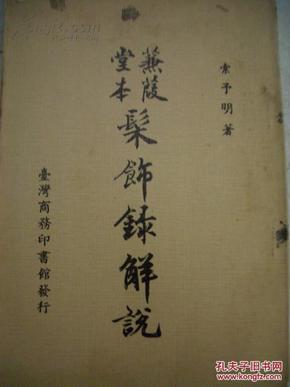 索予明著
蒹葭
堂本
髹飾錄解說
臺灣商務印書館發行
孔夫子旧书网